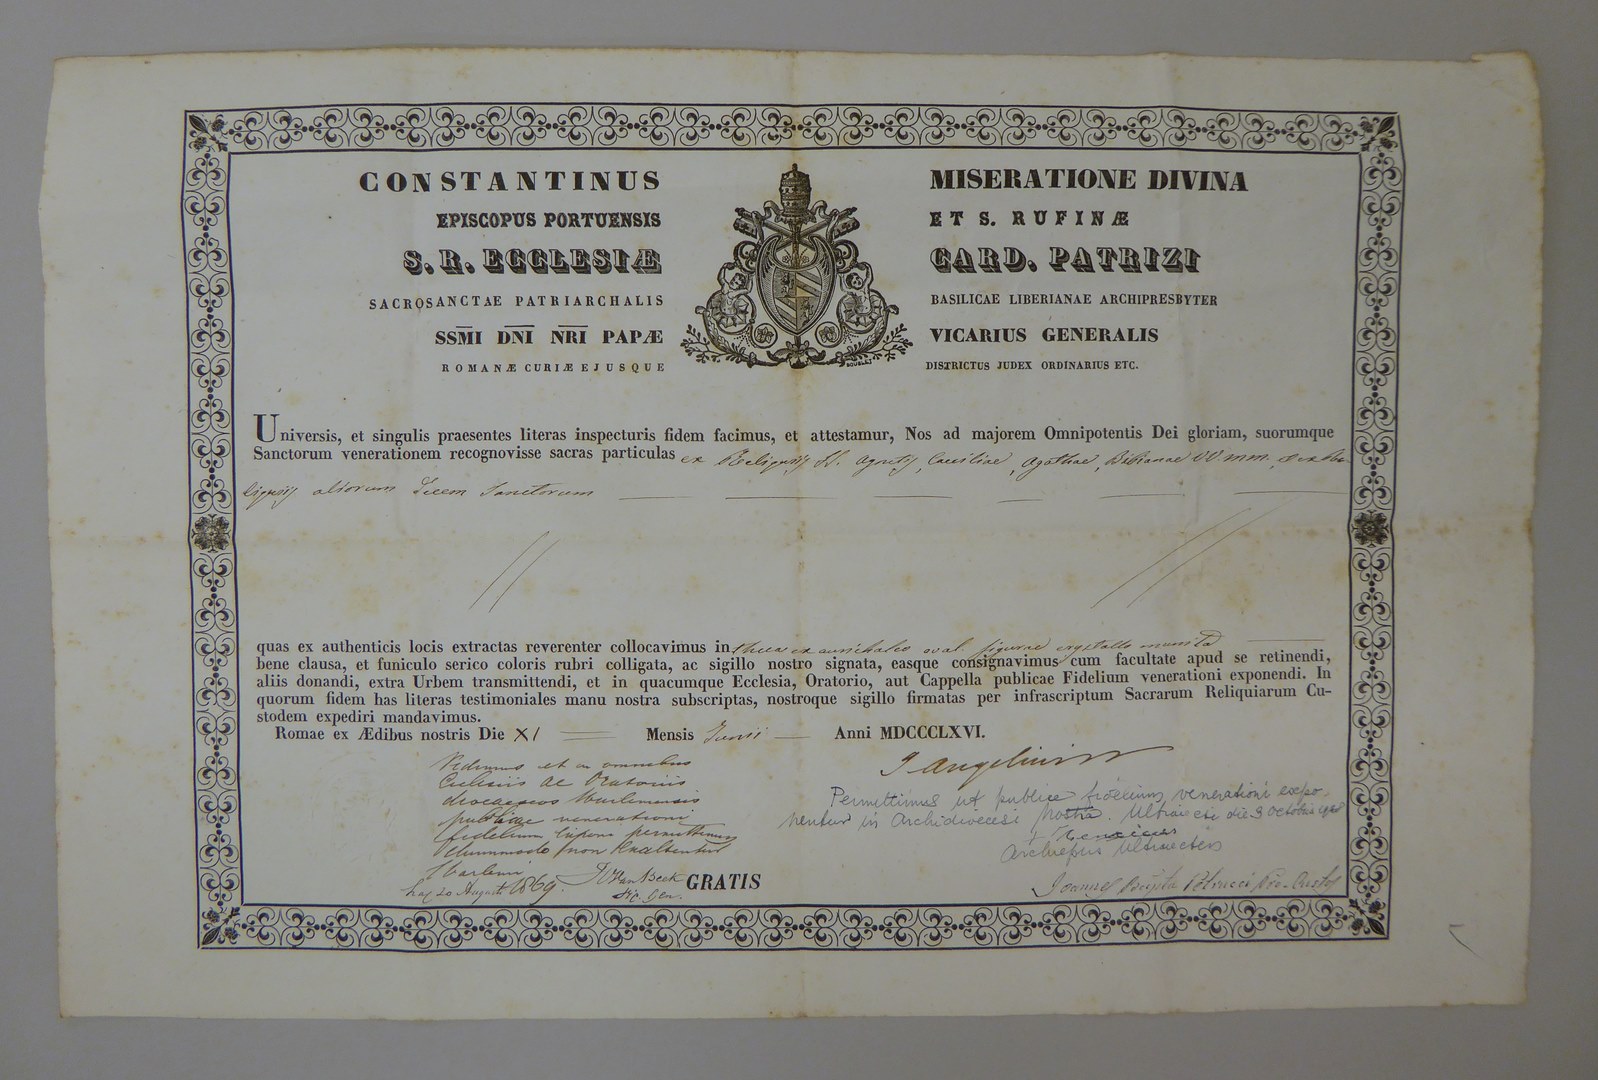 CONSTANTINUS MISERATIONE DIVINA
EPISCOPUS PORTUENSIS ET S. RUFINÆ
S. R. ECCLESIÆ CARD. PATRIZI
SACROSANCTAE PATRIARCHALIS BASILICAE LIBERIANAE ARCHIPRESBYTER
SSMI DNI NRI PAPÆ VICARIUS GENERALIS
ROMANÆ CURIÆ EJUSQUE DISTRICTUS JUDEX ORDINARIUS ETC.
Universis, et singulis praesentes literas inspecturis fidem facimus, et attestamur, Nos ad majorem Omnipotentis Dei gloriam, suorumque
Sanctorum venerationem recognovisse sacras particulas ex Reliquiis SS. Agnetis, Caeciliae, Agathae, Bibianae VV. mm. et ex Re-
liquiis aliorum Sanctorum
quas ex authenticis locis extractas reverenter collocavimus in theca ex aurichalco oval. figurae crystallo munita
bene clausa, et funiculo serico coloris rubri colligata, ac sigillo nostro signata, easque consignavimus cum facultate apud se retinendi,
aliis donandi, extra Urbem transmittendi, et in quacumque Ecclesia, Oratorio, aut Cappella publicae Fidelium venerationi exponendi. In
quorum fidem has literas testimoniales manu nostra subscriptas, nostroque sigillo firmatas per infrascriptum Sacrarum Reliquiarum Cu-
stodem expediri mandavimus.
Romae ex Ædibus nostris Die XI Mensis Junii Anni MDCCCLXVI.
Vidimus et in omnibus
Ecclesiis ac Oratoriis
dioceseos Harlemensis
publicae venerationi
fidelium exponi permittimus
dummodo non
Harlemi
hac 20 Augusti 1869.
J. Van Beek
Vic. Gen.
GRATIS
J Angelini
Permittimus ut publice fidelium venerationi expo-
nentur in Archidioecesi nostra. Ultraiecti die 3 octobris
+ Henricus
Archiepus Ultraiecten
Joannes Petrucci Pro-Custos